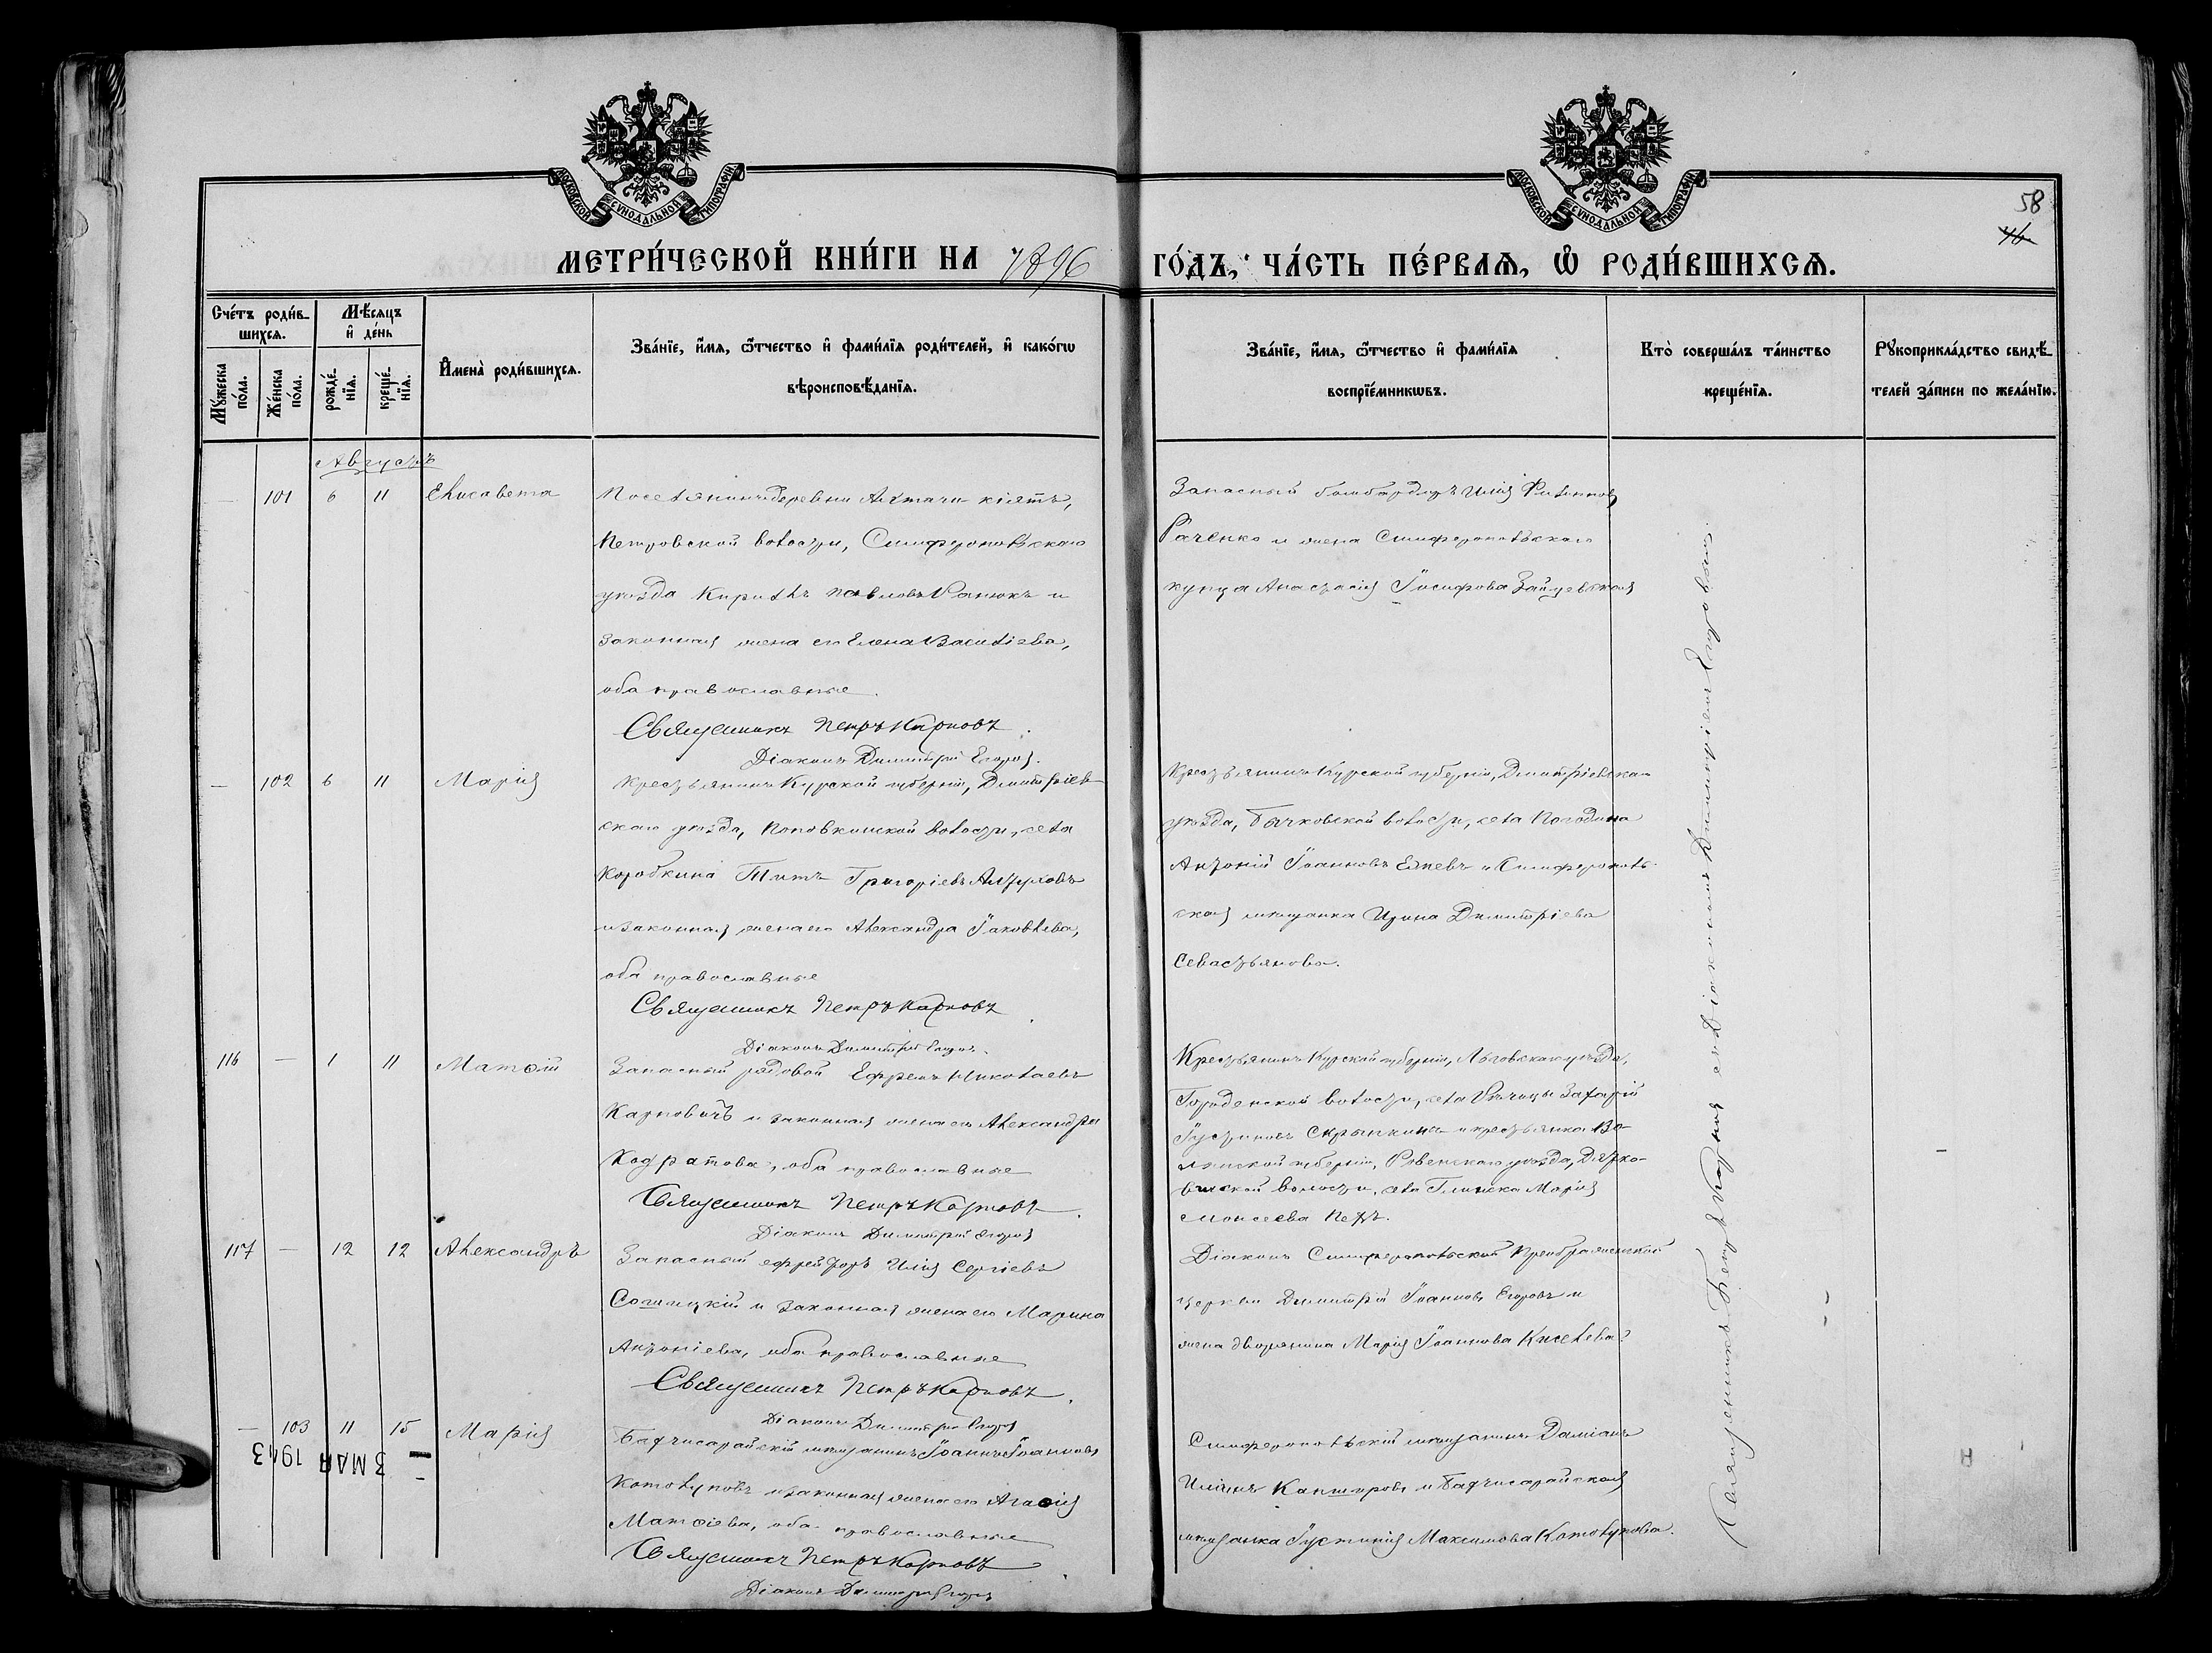 МОСКОВСКОЙ СѴНОДАЛЬНОЙ ТИПОГРАФІИ
МОСКОВСКОЙ СѴНОДАЛЬНОЙ ТИПОГРАФІИ
58
46
МЕТРИ́ЧЕСКОЙ КНИ́ГИ НА 1896 ГО́ДЪ, ЧА́СТЬ ПЕ́РВАЯ, Ѡ РОДИ́ВШИХСЯ.
Сче́тъ роди́в-
шихся.
Мꙋ́жеска по́ла.
Же́нска по́ла.
Мѣ́сяцъ и де́нь
рожде́нїя.
креще́нїя.
И҆мена̀ роди́вшихся.
Зва́нїе, и҆́мя, ѻ҆́тчество и҆ фами́лїя роди́телей, и҆ како́гѡ
вѣроисповѣ́данїя.
Зва́нїе, и҆́мя, ѻ҆́тчество и҆ фами́лїя
воспрїе́мникѡвъ.
Кто̀ соверша́лъ та́инство
креще́нїя.
Рꙋкоприкла́дство свидѣ́-
телей за́писи по жела́нїю.
Августъ
— 101 6 11 Елисавета
Поселянинъ деревни Ахтачи-кіятъ,
Петровской волости, Симферопольскаго
уѣзда Кириллъ Павловъ Панюкъ и
законная жена его Елена Василіева,
оба православные.
Священникъ Петръ Карповъ.
Діаконъ Димитрій Егоровъ.
Запасный бомбардиръ Илія Филиппов
Раченко и жена Симферопольскаго
купца Анастасія Іосифова Зайцевская
— 102 6 11 Марія
Крестьянинъ Курской губерніи, Дмитріев-
скаго уѣзда, Поповкинской волости, села
Коробкина Титъ Григоріевъ Алтуховъ
и законная жена его Александра Іаковлева,
оба православные
Священникъ Петръ Карповъ
Діаконъ Димитрій Егоровъ.
Крестьянинъ Курской губерніи, Дмитріевскаго
уѣзда, Бычковской волости, села Погодина
Антоній Іоанновъ Елневъ и Симферополь-
ская мѣщанка Ирина Димитріева
Севастьянова.
116 — 1 11 Матѳій
Запасный рядовой Ефремъ Николаевъ
Карповичъ и законная жена его Александра
Кодратова, оба православные
Священникъ Петръ Карповъ.
Діаконъ Димитрій Егоровъ
Крестьянинъ Курской губерніи, Льговскаго уѣзда,
Городенской волости, села Рѣчицы Захарій
Іустиновъ Скрыпкинъ и крестьянка Во-
лынской губерніи, Ровенскаго уѣзда, Дятко-
вичской волости, села Глинска Марія
Моисеева Петъ.
117 — 12 12 Александръ
Запасный ефрейторъ Илія Сергіевъ
Сошицкій и законная жена его Марина
Антоніева, оба православные
Священникъ Петръ Карповъ.
Діаконъ Димитрій Егоровъ
Діаконъ Симферопольской Преображенской
церкви Димитрій Іоанновъ Егоровъ и
жена дворянина Марія Іоаннова Киселева.
— 103 11 15 Марія
Бахчисарайскій мѣщанинъ Іоаннъ Іоанновъ
Котолуповъ и законная жена его Агаѳія
Матѳіева, оба православные
Священникъ Петръ Карповъ.
Діаконъ Димитрій Егоровъ
Симферопольскій мѣщанинъ Даміанъ
Иліинъ Каншировъ и Бахчисарайская
мѣщанка Іустинія Максимова Котолупова.
Священникъ Петръ Карповъ съ Діакономъ Димитріемъ Егоровымъ.
3 МАЯ 1943